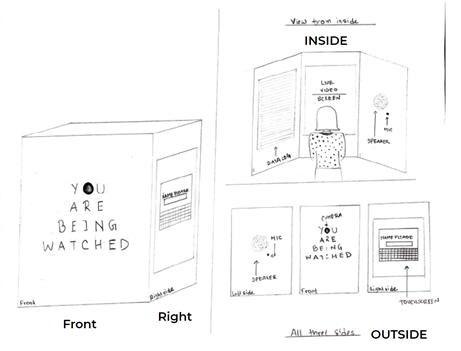 YOU
ARE
BEING
WATCHED
NAME PLEASE
Front
Right side
Front
Right
View from inside
INSIDE
LIVE
VIDEO
SCREEN
DATA LOG
MIC
SPEAKER
CAMERA
MIC
SPEAKER
Left side
YOU
ARE
BEING
WATCHED
Front
NAME PLEASE
Right side
TOUCHSCREEN
All three sides
OUTSIDE